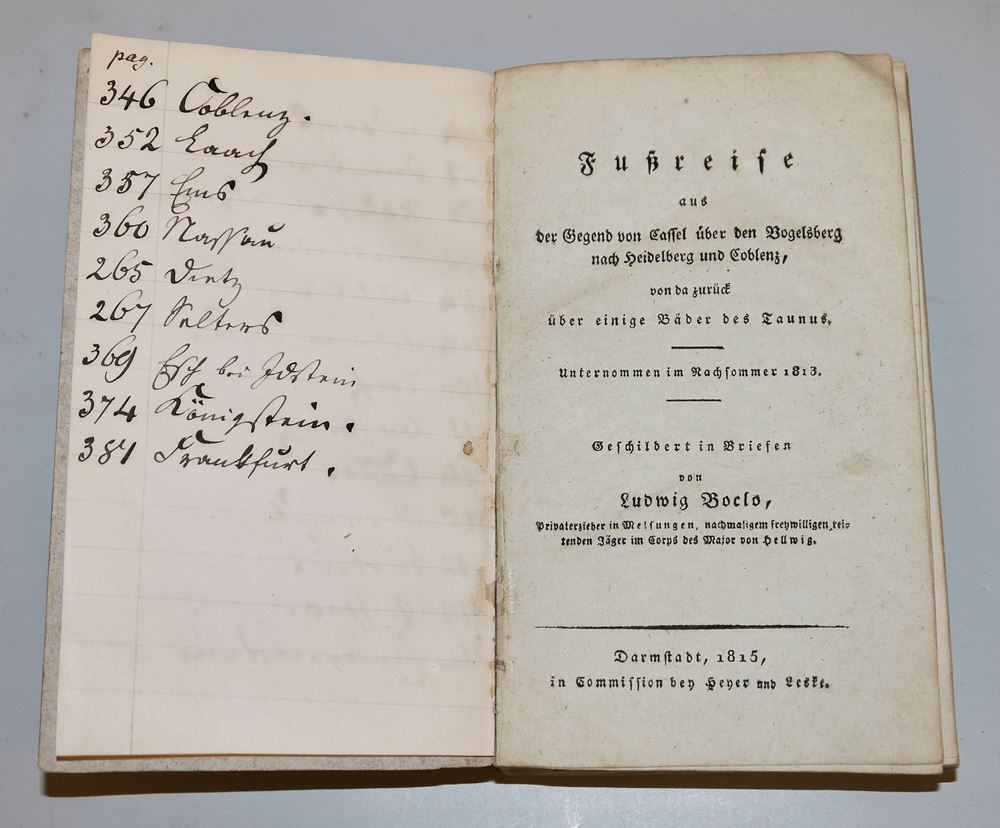 pag.
346 Coblenz.
352 Laach
357 Ems
360 Nassau
265 Dietz
267 Selters
369 Esch bei Idstein
374 Königstein.
381 Frankfurt.
Fußreise
aus
der Gegend von Cassel über den Vogelsberg
nach Heidelberg und Coblenz,
von da zurück
über einige Bäder des Taunus.
Unternommen im Nachsommer 1813.
Geschildert in Briefen
von
Ludwig Boclo,
Privaterzieher in Melsungen, nachmaligem freywilligen rei-
tenden Jäger im Corps des Major von Hellwig.
Darmstadt, 1815,
in Commission bey Heyer und Leske.